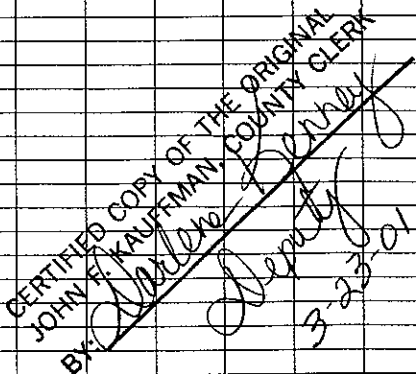 CERTIFIED COPY OF THE ORIGINAL
JOHN F. KAUFFMAN, COUNTY CLERK
BY: Darlene
Deputy
3-23-01